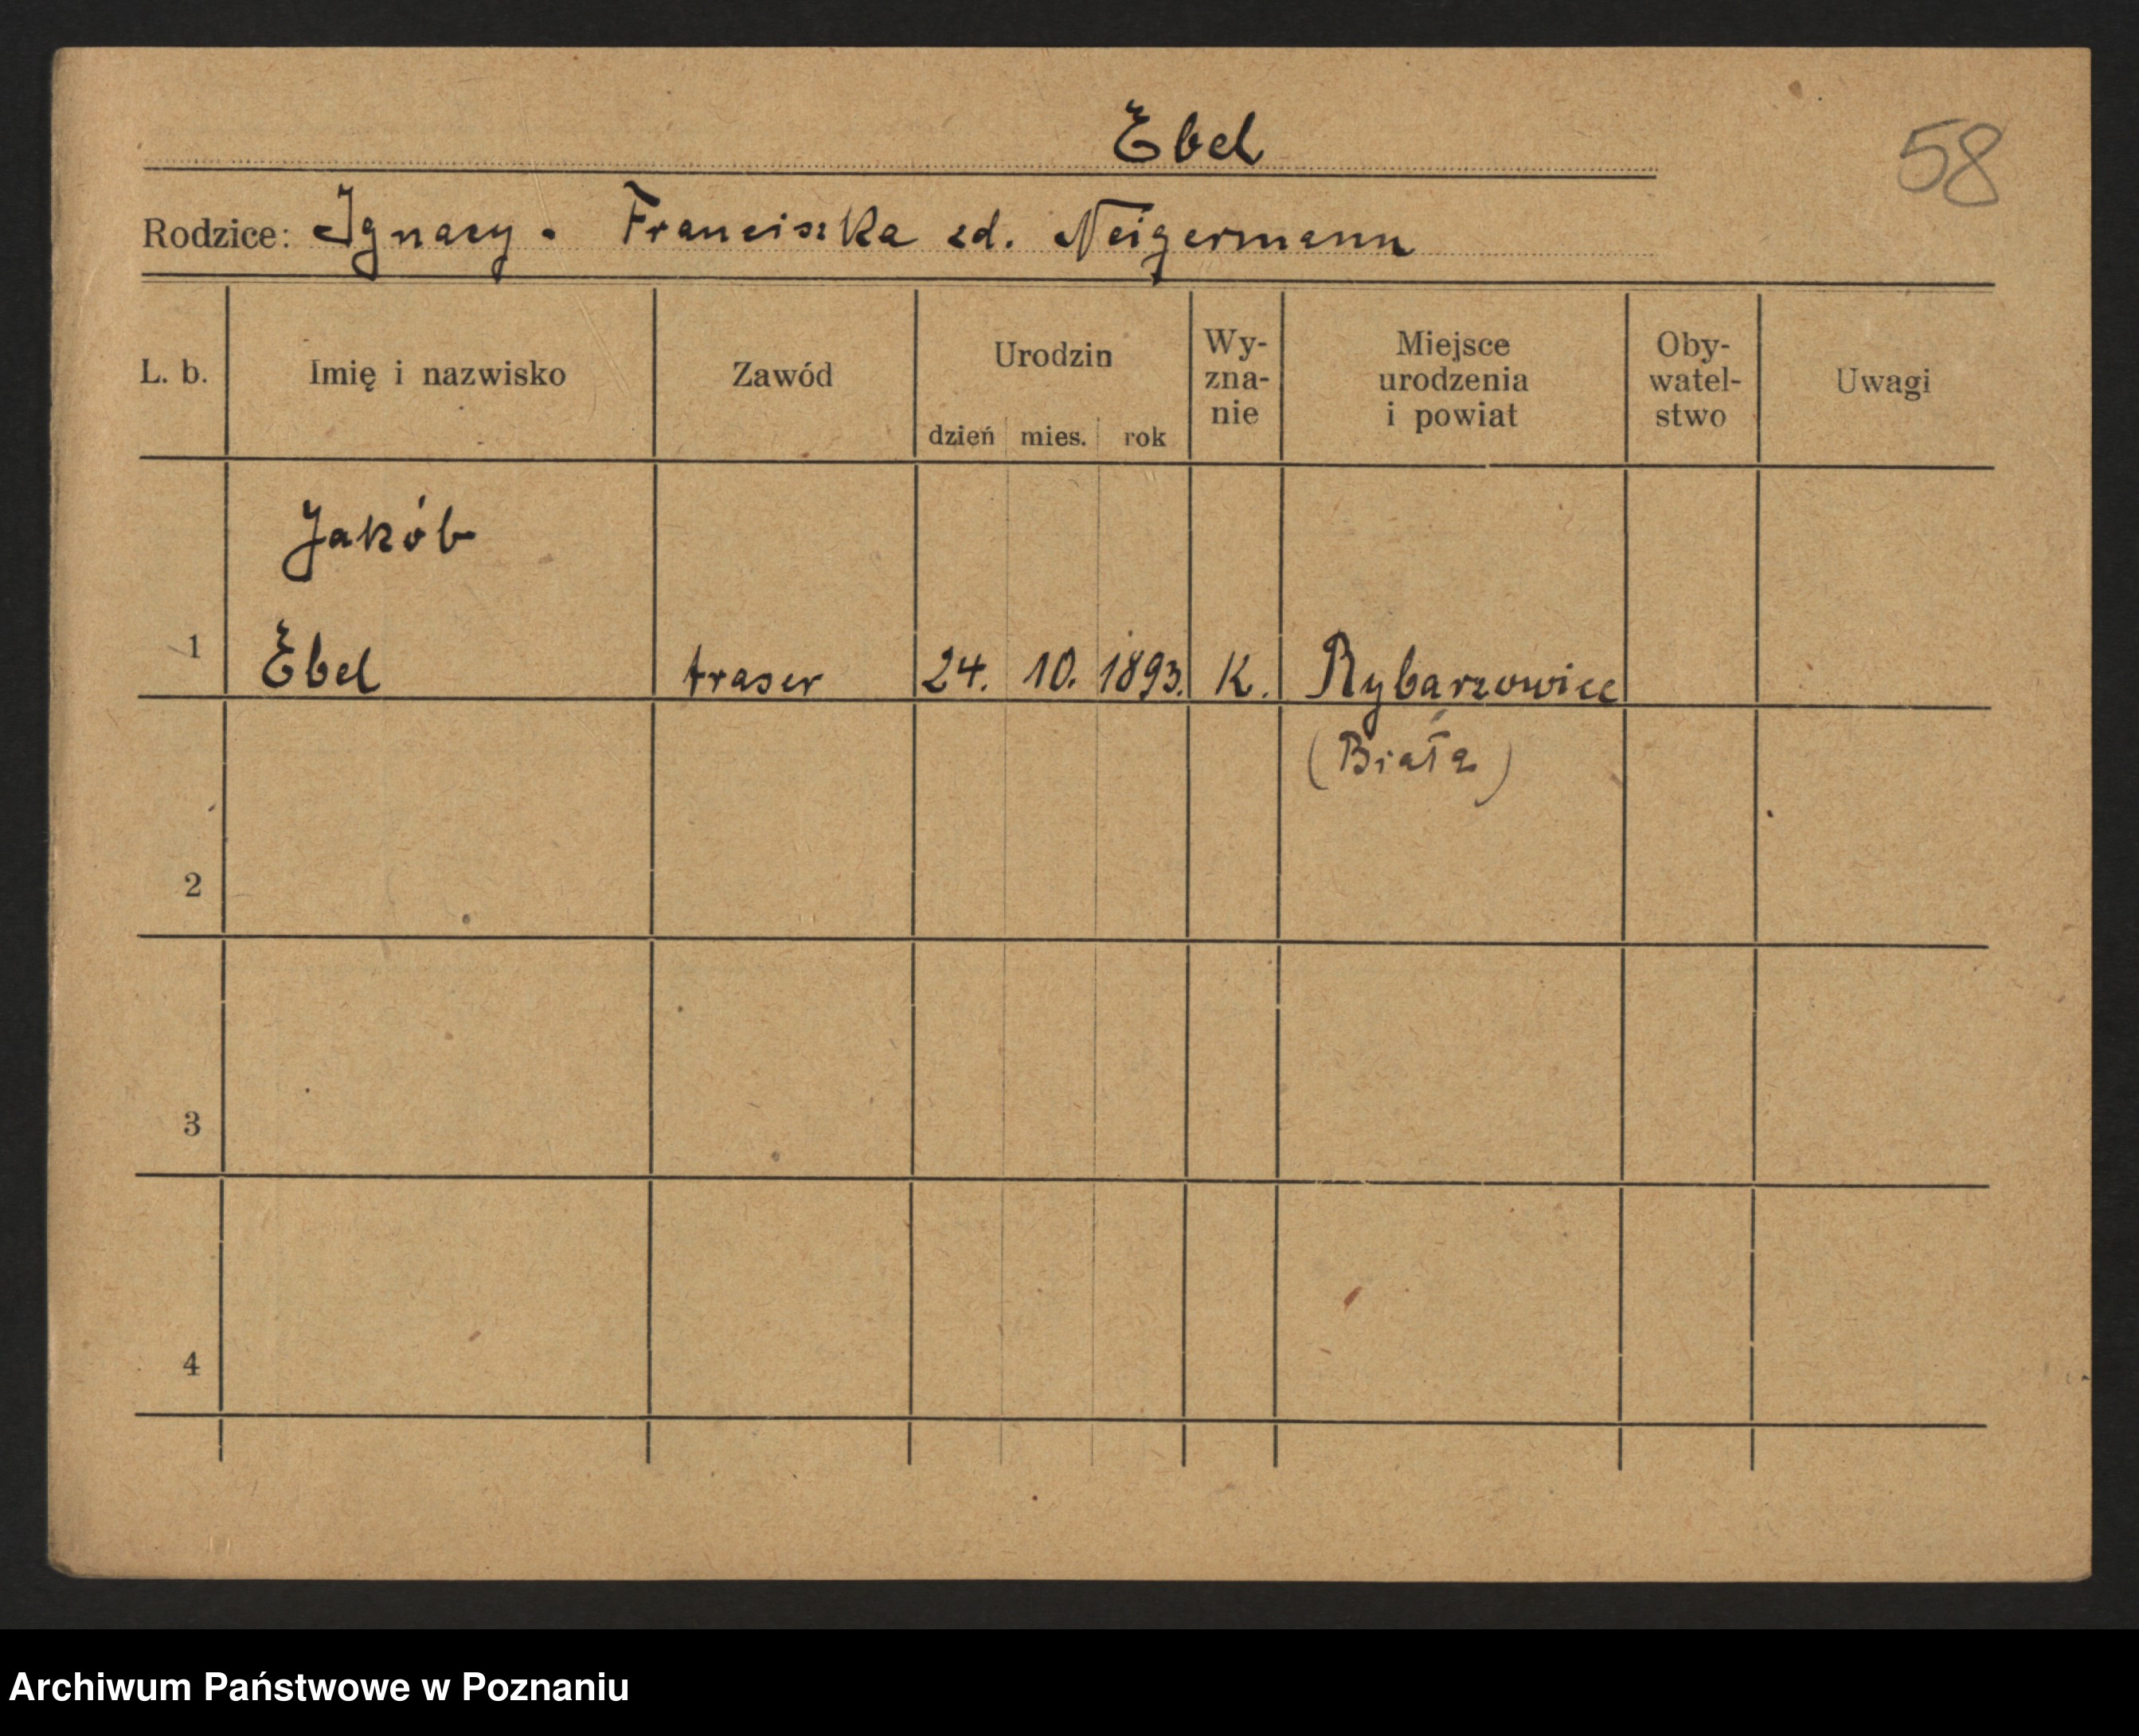 Ebel
58
Rodzice: Ignacy. Franciszka zd. Neigermann
L. b. Imię i nazwisko Zawód Urodzin dzień mies. rok Wy-zna-nie Miejsce urodzenia i powiat Oby-watel-stwo Uwagi
Jakób
1 Ebel traser 24. 10. 1893. K. Rybarzowice
(Biała)
2
3
4
Archiwum Państwowe w Poznaniu